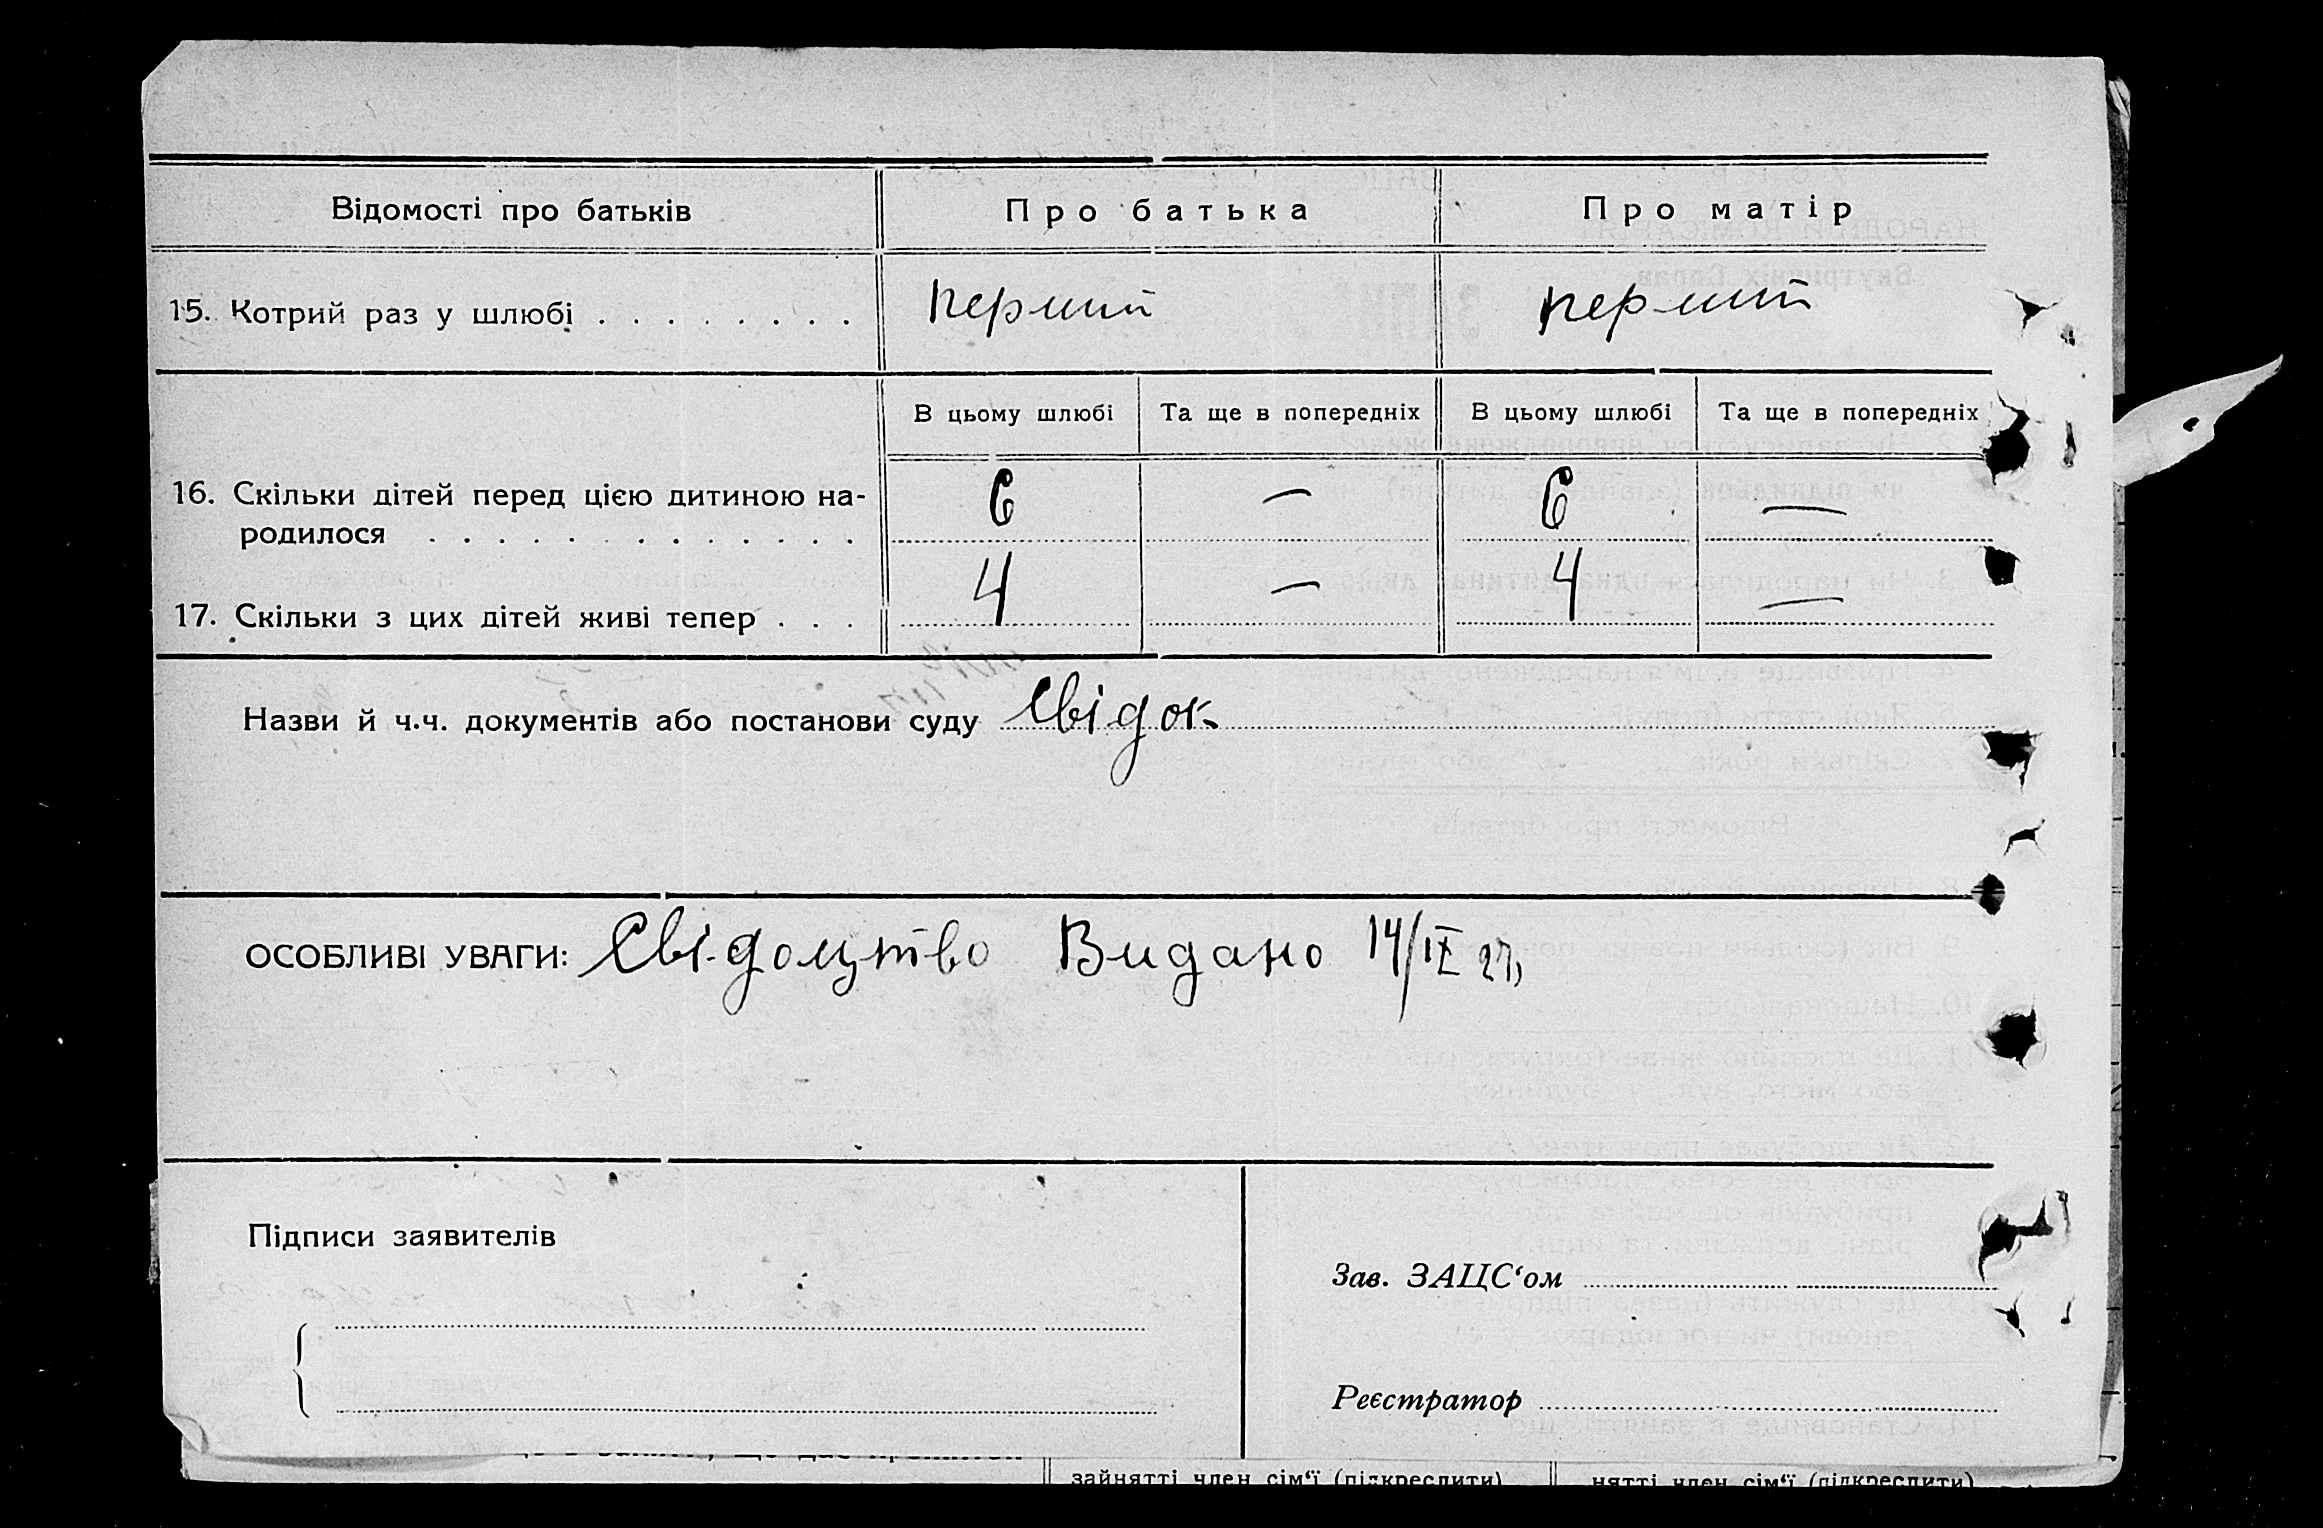 Відомості про батьків Про батька Про матір
15. Котрий раз у шлюбі . . . . . . . . перший перший
В цьому шлюбі Та ще в попередніх В цьому шлюбі Та ще в попередніх
16. Скільки дітей перед цією дитиною на-
родилося . . . . . . . . . . . . . 6 — 6 —
17. Скільки з цих дітей живі тепер . . . 4 — 4 —
Назви й ч.ч. документів або постанови суду Свідок
ОСОБЛИВІ УВАГИ: Свідоцтво Видано 14/IX 27,
Підписи заявителів
Зав. ЗАЦС‘ом
Реєстратор
зайнятті член сім‘ї (підкреслити) нятті член сім‘ї (підкреслити)